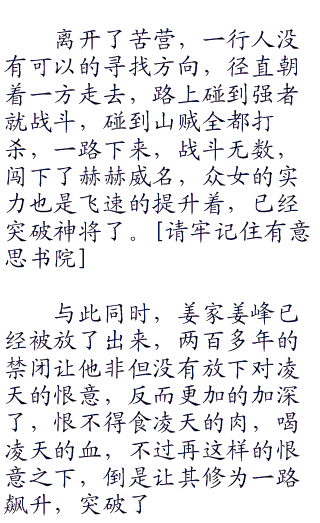 离开了苦营，一行人没
有可以的寻找方向，径直朝
着一方走去，路上碰到强者
就战斗，碰到山贼全都打
杀，一路下来，战斗无数，
闯下了赫赫威名，众女的实
力也是飞速的提升着，已经
突破神将了。[请牢记住有意
思书院]
与此同时，姜家姜峰已
经被放了出来，两百多年的
禁闭让他非但没有放下对凌
天的恨意，反而更加的加深
了，恨不得食凌天的肉，喝
凌天的血，不过再这样的恨
意之下，倒是让其修为一路
飙升，突破了